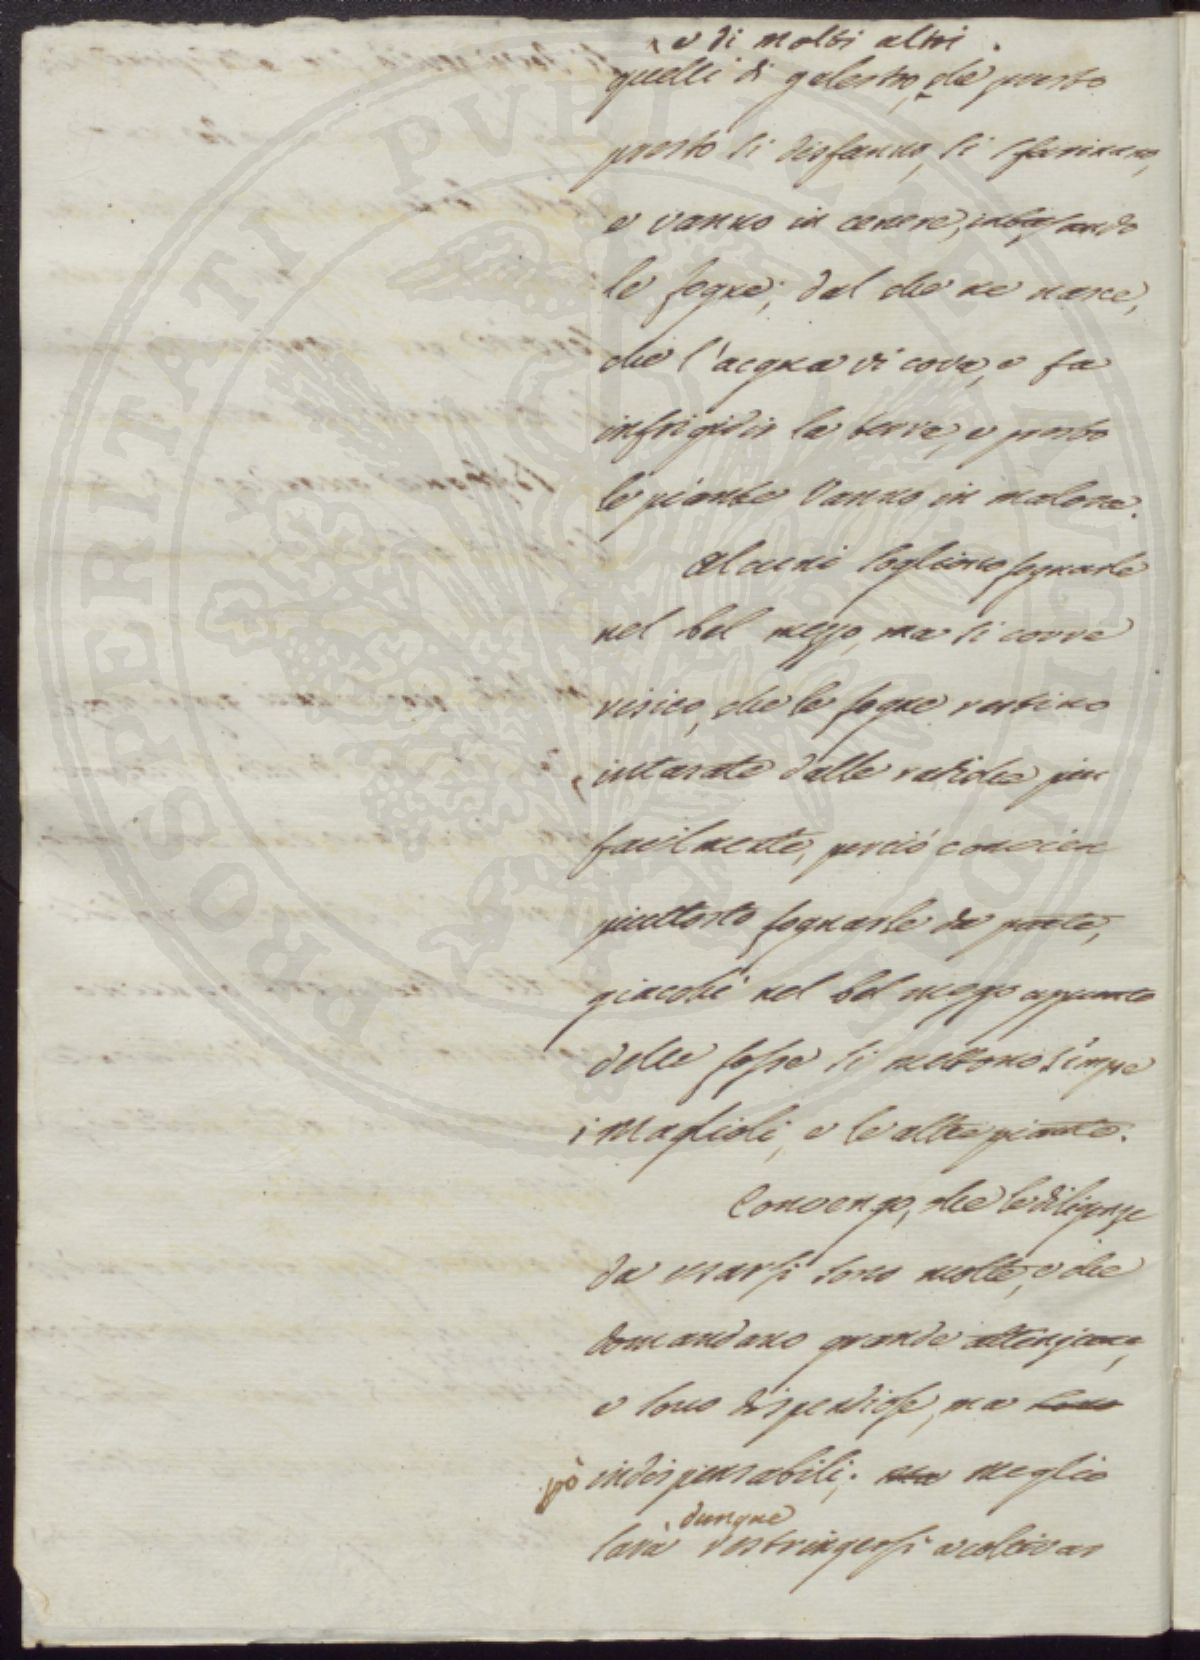 e di molti altri
quelli di galestro, che presto
presto si disfanno, si sfarinano,
e vanno in cenere, intasando
le fogne; dal che ne nasce,
che l'acqua vi cova, e fa
infrigidir la terra, e presto
le piante vanno in malora.
Alcuni sogliono fognarle
nel bel mezzo, ma si corre
risico, che le fogne restino
intasate dalle radiche piu
facilmente, perciò convien
piuttosto fognarle da parte,
giacchè nel bel mezzo appunto
delle fosse si mettono sempre
i Maglioli, e le altre piante.
Convengo, che le diligenze
da usarsi sono molte, e che
domandano grande attenzione,
e sono dispendiose, ma sono
però indispensabili; ma meglio
dunque
sarà restringersi a coltivar
PROSPERITATI PVBLICAE AVGENDAE